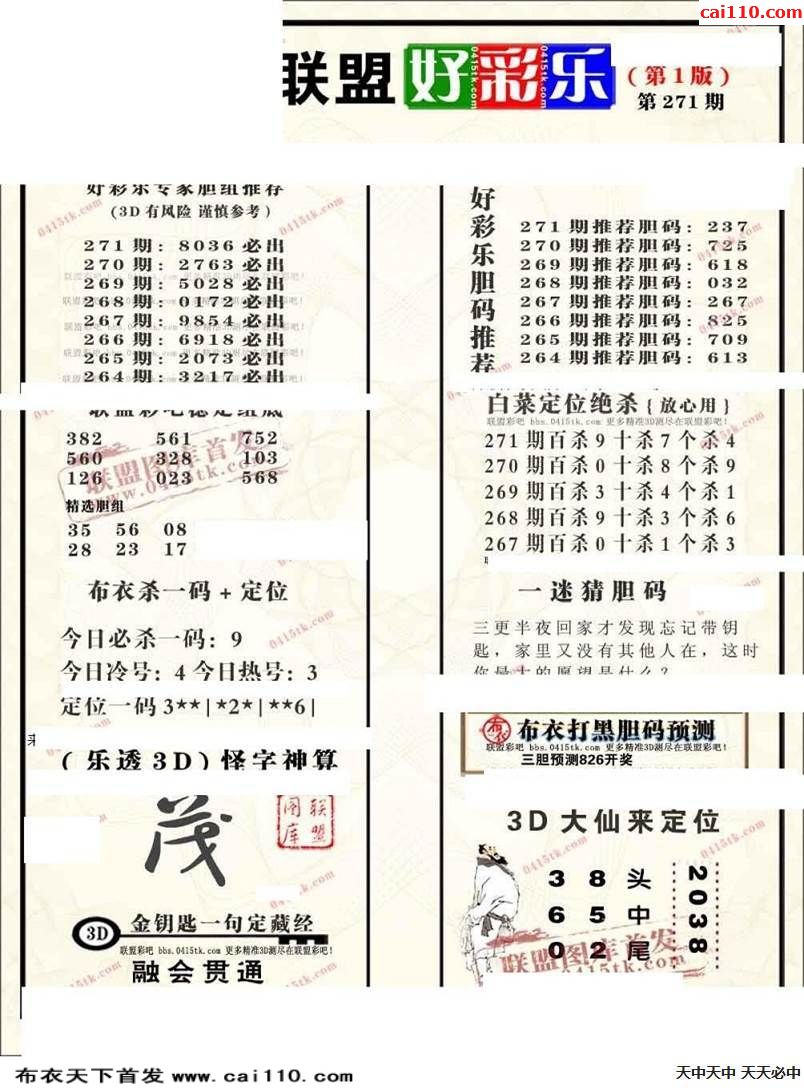 cai110.com
联盟好彩乐
(第1版)
第271期
好彩乐专家胆组推荐
(3D有风险 谨慎参考)
271期: 8036必出
270期: 2763必出
269期: 5028必出
268期: 0172必出
267期: 9854必出
266期: 6918必出
265期: 2073必出
264期: 3217必出
联盟彩吧稳定组底
382 561 752
560 328 103
126 023 568
精选胆组
35 56 08
28 23 17
布衣杀一码 + 定位
今日必杀一码: 9
今日冷号: 4 今日热号: 3
定位一码 3**|*2*|**6|
来
(乐透3D)怪字神算
茂
联盟图库
3D
金钥匙一句定藏经
联盟彩吧 bbs.0415tk.com 更多精准3D测尽在联盟彩吧!
融会贯通
好彩乐胆码推荐
271期推荐胆码: 237
270期推荐胆码: 725
269期推荐胆码: 618
268期推荐胆码: 032
267期推荐胆码: 267
266期推荐胆码: 825
265期推荐胆码: 709
264期推荐胆码: 613
白菜定位绝杀{放心用}
联盟彩吧 bbs.0415tk.com 更多精准3D测尽在联盟彩吧!
271期百杀9十杀7个杀4
270期百杀0十杀8个杀9
269期百杀3十杀4个杀1
268期百杀9十杀3个杀6
267期百杀0十杀1个杀3
一迷猜胆码
三更半夜回家才发现忘记带钥
匙，家里又没有其他人在，这时
你最大的愿望是什么?
布衣
布衣打黑胆码预测
联盟彩吧 bbs.0415tk.com 更多精准3D测尽在联盟彩吧!
三胆预测826开奖
3D大仙来定位
3 8 头
6 5 中
0 2 尾
2038
联盟图库首发
www.0415tk.com
0415tk.com
布衣天下首发 www.cai110.com
天中天中 天天必中